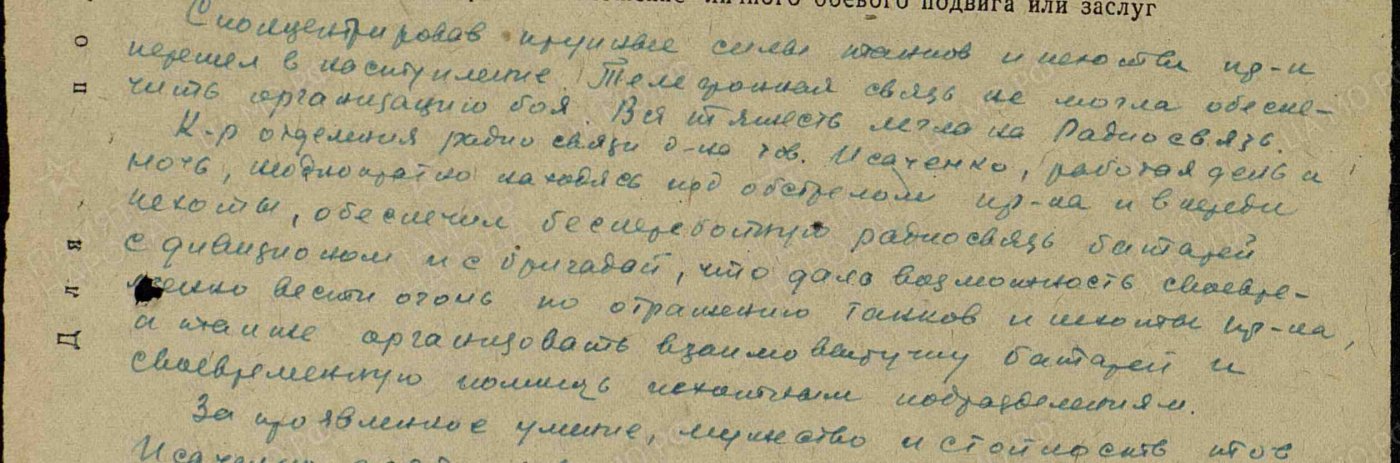 личного боевого подвига или заслуг
Сконцентрировав крупные силы танков и пехоты пр-к
перешел в наступление. Телефонная связь не могла обеспе-
чить организацию боя. Вся тяжесть легла на Радиосвязь.
К-р отделения радиосвязи д-на тов. Исаченко, работая день и
ночь, неоднократно находясь под обстрелом пр-ка и впереди
пехоты, обеспечил бесперебойную радиосвязь батарей
с дивизионом и с бригадой, что дало возможность своевре-
менно вести огонь по отражению танков и пехоты пр-ка,
а также организовать взаимовыручку батарей и
своевременную помощь пехотным подразделениям.
За проявленное умение, мужество и стойкость тов
Для по